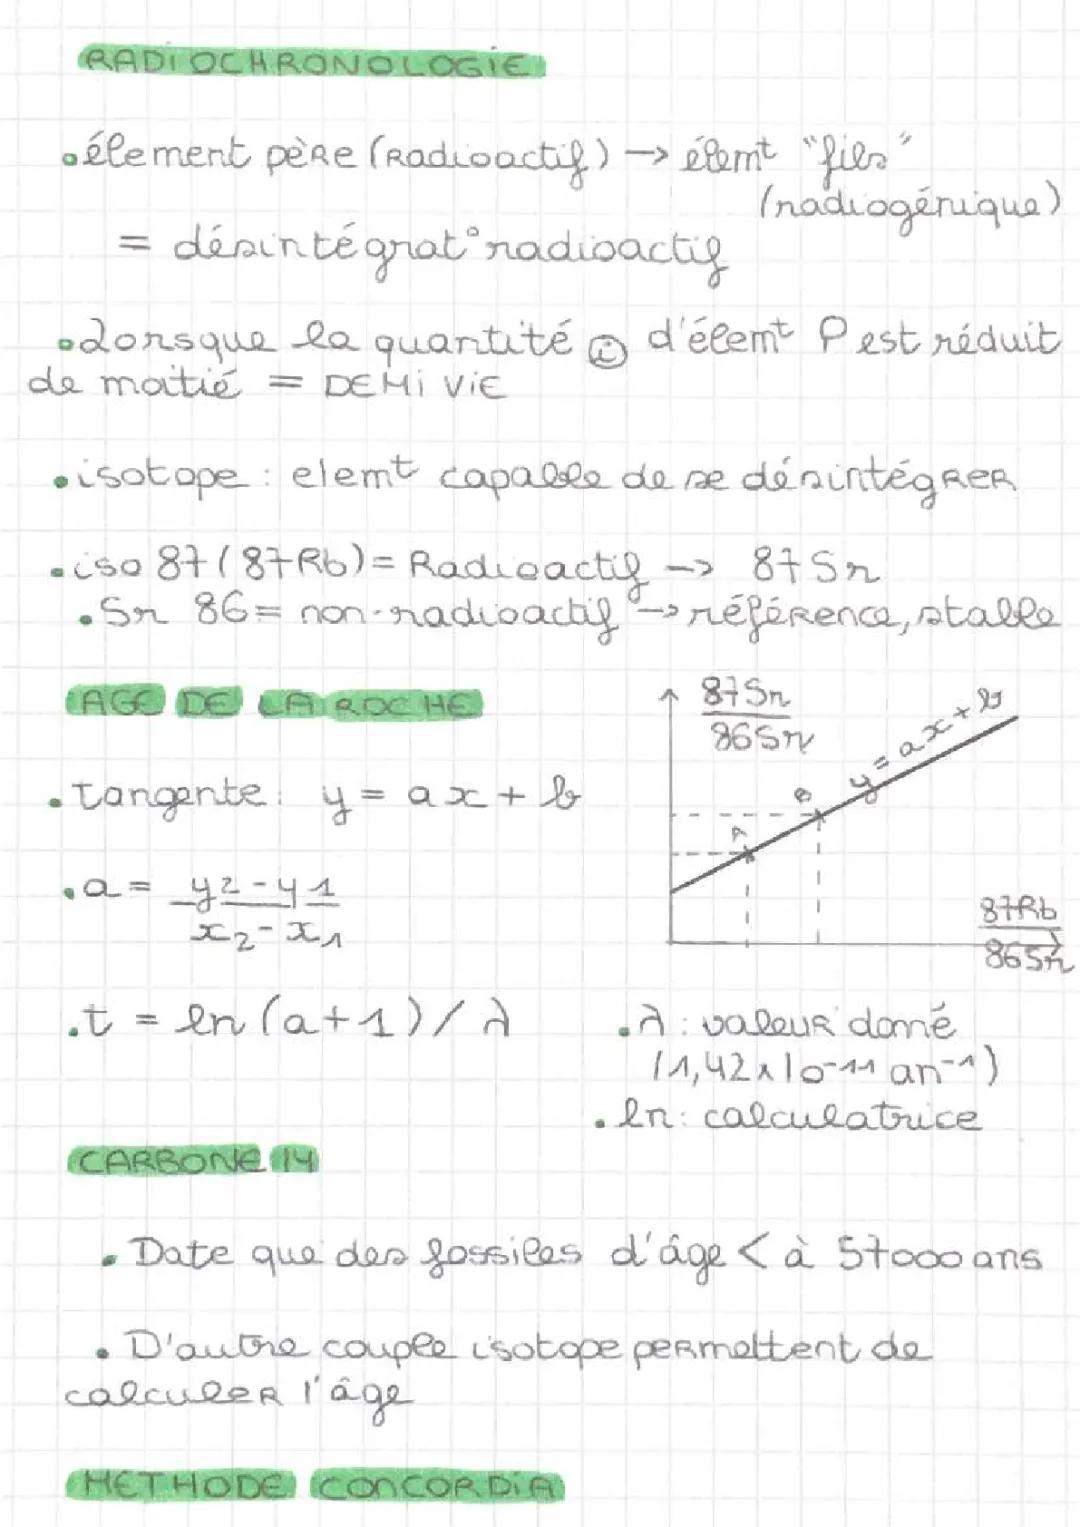 RADIOCHRONOLOGIE
•élement père (Radioactif) → élemt "fils"
(radiogénique)
= désintégrat° radioactif
•Lorsque la quantité d'élemt P est réduit
de moitié = DEMI VIE
•isotope : elemt capable de se désintégrer
•iso 87 (87Rb) = Radioactif -> 87Sr
•Sr 86 = non-radioactif -> référence, stable
AGE DE LA ROCHE
•tangente: y = ax + b
•a = y2-y1
x2-x1
•t = ln (a+1) / λ
87Sr
86Sr
y = ax + b
A
B
87Rb
86Sr
•λ : valeur donné
(1,42 x 10-11 an-1)
•ln : calculatrice
CARBONE 14
•Date que des fossiles d'âge < à 57000 ans
•D'autre couple isotope permettent de
calculer l'âge
METHODE CONCORDIA